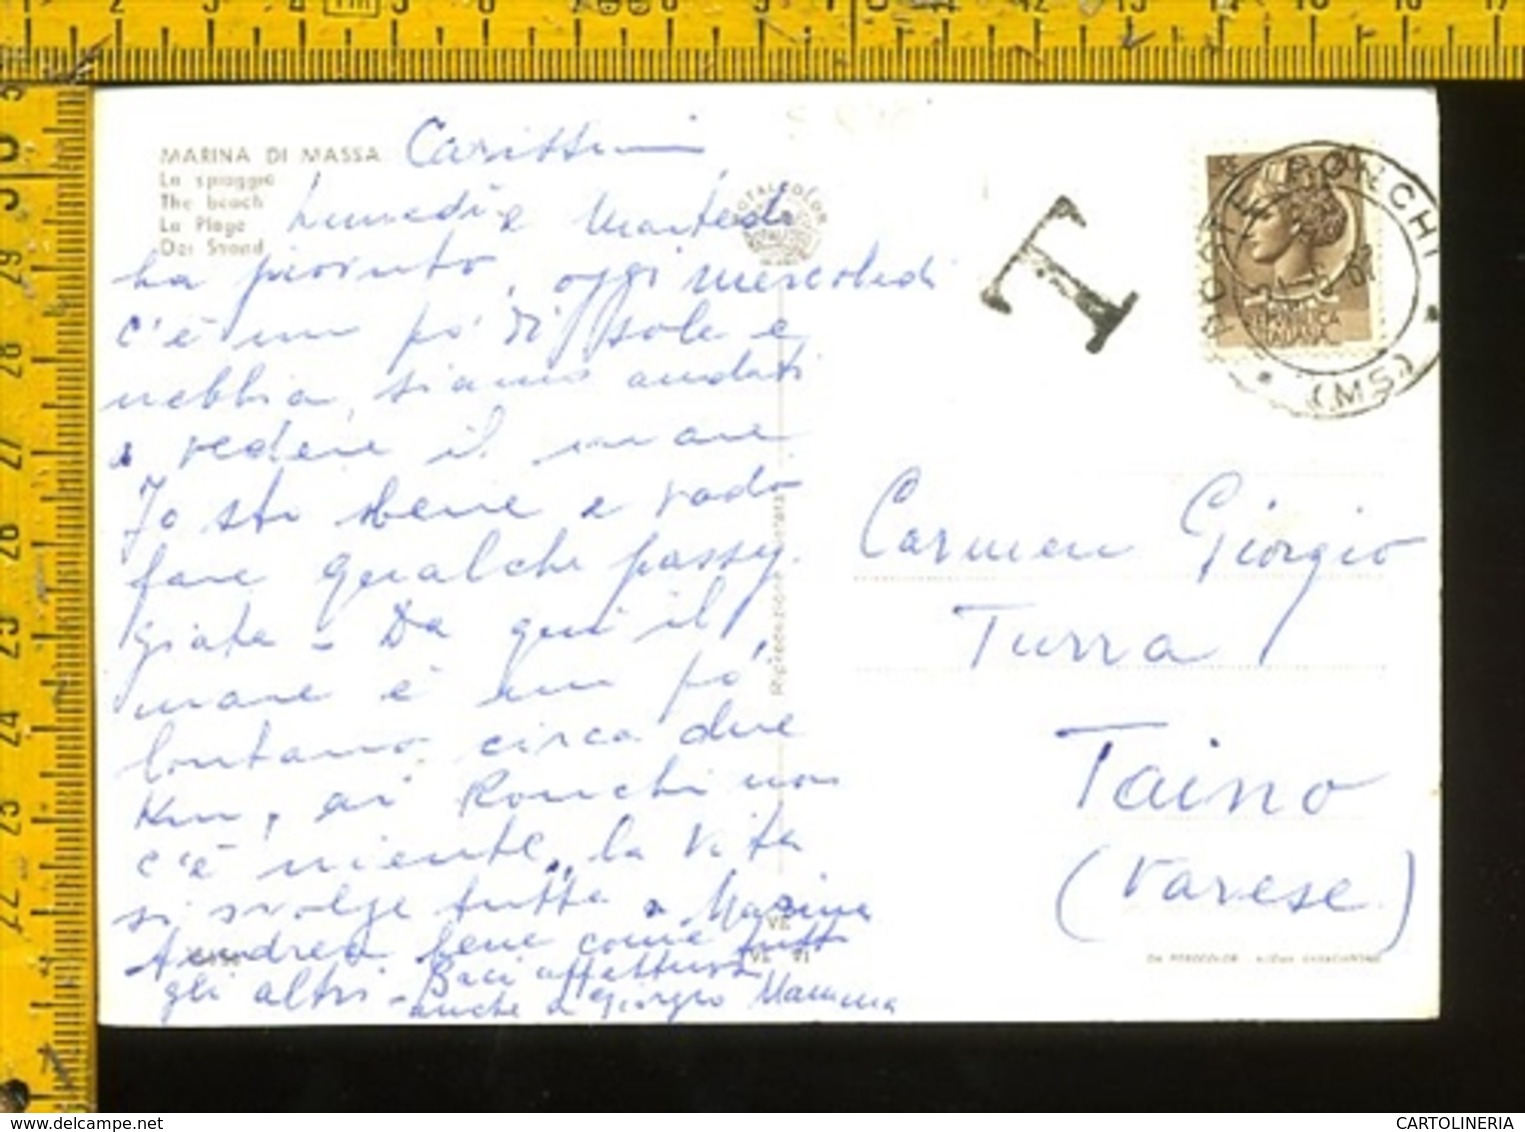 MARINA DI MASSA
La spiaggia
The beach
La Plage
Der Strand
Carissimi
Lunedi e Martedi
ha piovuto, oggi mercoledi
c'è un po' di sole e
nebbia, siamo andati
a vedere il mare
Io sto bene e vado
fare qualche passeg
giata - Da qui il
mare è un po'
lontano circa due
Km, ai Ronchi non
c'è niente, la vita
si svolge tutta a Marina
Andrea bene come tutti
gli altri - Baci affettuosi
anche a Giorgio Mamma
TOTALCOLOR
Riproduzione vietata
VE
T
RONCHI
(MS)
REPUBBLICA
ITALIANA
Carmen Giorgio
Turra
Taino
(Varese)
www.delcampe.net
CARTOLINERIA